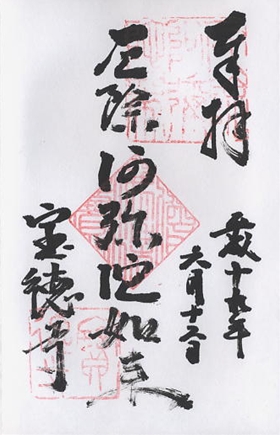 奉拝
平成十九年
六月十二日
厄除阿弥陀如来
宝徳寺